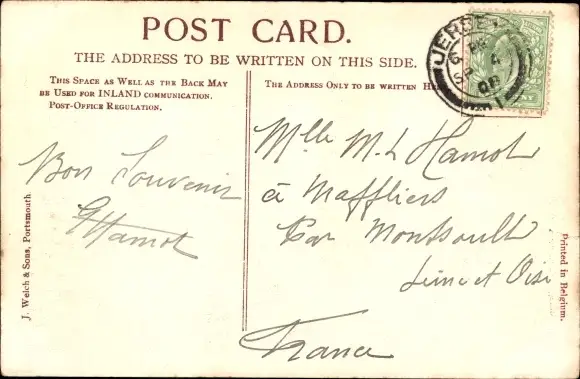 POST CARD.
THE ADDRESS TO BE WRITTEN ON THIS SIDE.
THIS SPACE AS WELL AS THE BACK MAY
BE USED FOR INLAND COMMUNICATION.
POST-OFFICE REGULATION.
THE ADDRESS ONLY TO BE WRITTEN
JERSEY
SP 4
08
Bon Souvenir
GHamot
Mlle M. L Hamot
à Maffliers
Par Montsoult
Seine et Oise
France
J. Welch & Sons, Portsmouth.
Printed in Belgium.